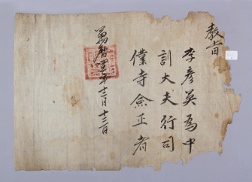 教旨
李彦英為中
訓大夫行司
僕寺僉正者
萬曆四年十二月十三日